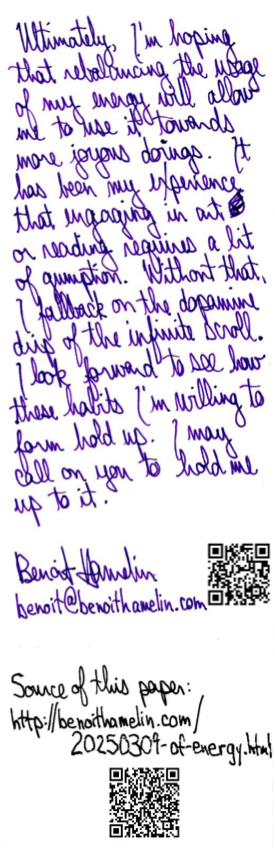 Ultimately, I'm hoping
that rebalancing the usage
of my energy will allow
me to use it towards
more joyous doings. It
has been my experience
that engaging in art
or reading requires a bit
of gumption. Without that,
I fallback on the dopamine
drip of the infinite scroll.
I look forward to see how
these habits I'm willing to
form hold up. I may
call on you to hold me
up to it.
Benoit Hamelin
benoit@benoithamelin.com
Source of this paper:
http://benoithamelin.com/
20250304-of-energy.html